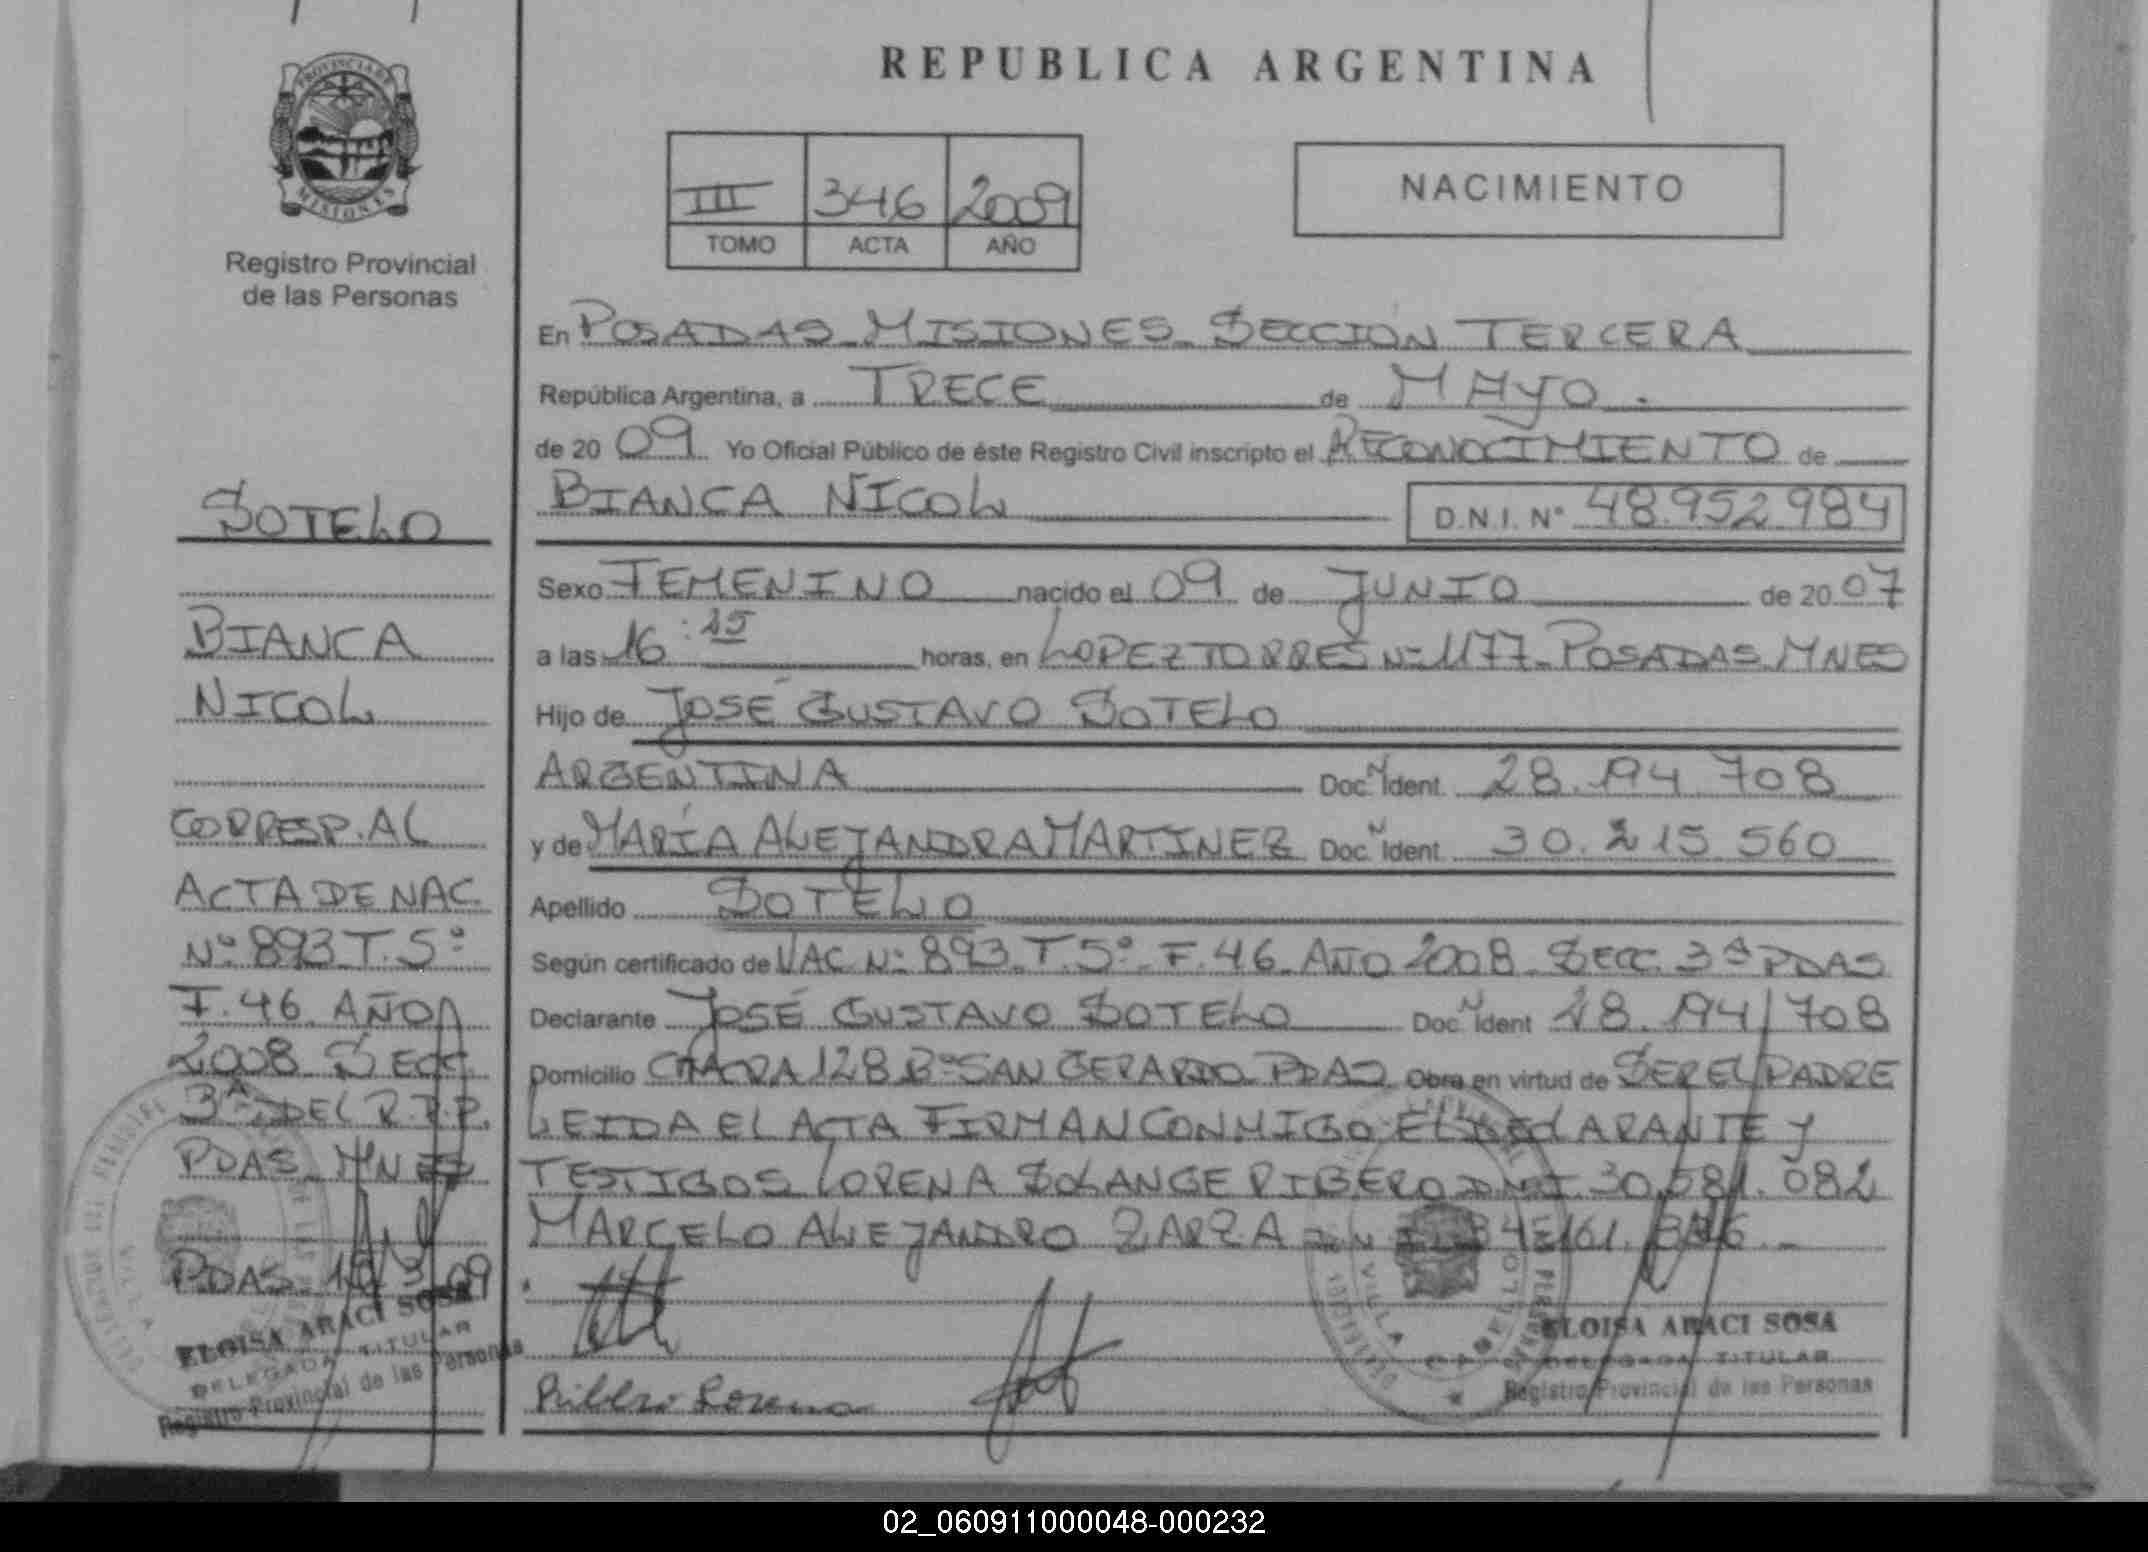 REPUBLICA ARGENTINA
PROVINCIA DE
MISIONES
Registro Provincial
de las Personas
III 346 2009
TOMO ACTA AÑO
NACIMIENTO
En POSADAS-MISIONES-SECCIÓN TERCERA
República Argentina, a TRECE de MAYO.
de 2009 Yo Oficial Público de éste Registro Civil inscripto el RECONOCIMIENTO de
BIANCA NICOL D.N.I. Nº 48.952.984
Sexo FEMENINO nacido el 09 de JUNIO de 2007
a las 16: horas, en LOPEZ TORRES Nº 1177-POSADAS MNES
Hijo de JOSÉ GUSTAVO SOTELO
ARGENTINA Doc. N Ident. 28.194.708
y de MARÍA ALEJANDRA MARTINEZ Doc. N Ident. 30.215.560
Apellido SOTELO
Según certificado de NAC Nº 893-T.5º-F.46-AÑO 2008-SECC. 3ª PDAS
Declarante JOSÉ GUSTAVO SOTELO Doc. N Ident 28.194.708
Domicilio CHACRA 128 Bº SAN GERARDO PDAS Obra en virtud de SER EL PADRE
LEIDA EL ACTA FIRMAN CONMIGO EL DECLARANTE Y
TESTIGOS LORENA SOLANGE RIBERO DNI 30.581.082
MARCELO ALEJANDRO ZARZA
SOTELO
BIANCA
NICOL
CORRESP. AL
ACTA DE NAC.
Nº 893 T.5º
F.46 AÑO
2008 SECC.
3ª DEL R.P.P.
PDAS-MNES
PDAS.
ELOISA ARACI SOSA
DELEGADA TITULAR
Registro Provincial de las Personas
Ribero Lorena
VILLA CABELLO
ELOISA ARACI SOSA
DELEGADA TITULAR
Registro Provincial de las Personas
02_060911000048-000232